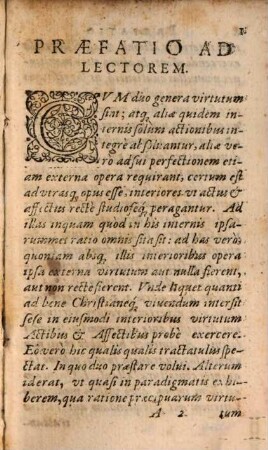 1.
PRÆFATIO AD
LECTOREM.
CVM duo genera virtutum
sint; atq, aliæ quidem in
internis solùm actionibus in
tegrè absoluantur, aliæ ve
rò ad sui perfectionem eti
am externa opera requirant, certum est
ad vtrasq, opus esse, interiores vt actus &
affectus rectè studioseq, peragantur. Ad
illas inquam quòd in his internis ipsa-
rum met ratio omnis sita sit: ad has verò,
quoniam absq, illis interioribus opera
ipsa externa virtutum aut nulla fierent,
aut non rectè fierent. Vnde liquet quanti
ad bene Christianeq, viuendum intersit
sese in eiusmodi interioribus virtutum
Actibus & Affectibus probè exercere.
Eò verò hic qualis qualis tractatulus spe-
ctat. In quo duo præstare volui. Alterum
id erat, vt quasi in paradigmatis exhi-
berem, qua ratione præcipuarum virtu-
A 2 tum